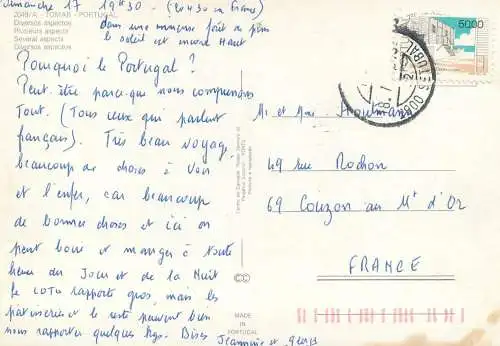 Dimanche 17 19h30 (20h30 en France)
dans une immense forêt de pins
le soleil est encore Haut
2049/A - TOMAR - PORTUGAL
Diversos aspectos
Plusieurs aspects
Several aspects
Diversos aspectos
Pourquoi le Portugal ?
Peut être parce que nous comprenons
Tout. (Tous ceux qui parlent
français). Très beau voyage,
beaucoup de choses à voir
et l'enfer, car beaucoup
de bonnes choses et ici on
peut boire et manger à toute
heure du Jour et de la Nuit
le LOTO rapporte gros, mais les
patisseries et le reste peuvent bien
nous rapporter quelques kgs. Bises Jeannine et
5000
Mr et Mme
49 rue Rochon
69 Couzon au Mt d'Or
FRANCE
MADE
IN
PORTUGAL